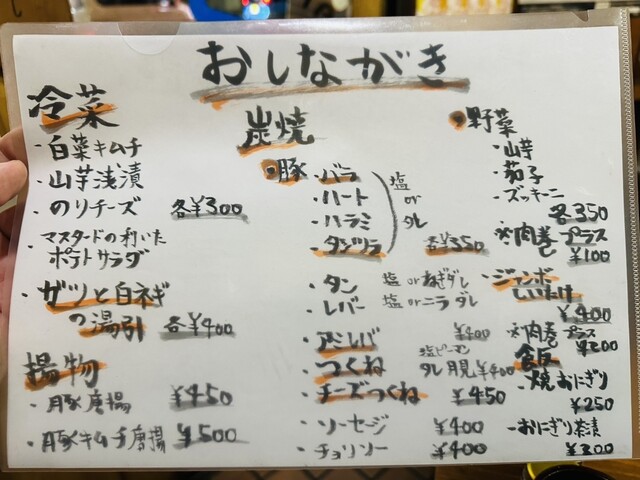 おしながき
冷菜
・白菜キムチ
・山芋浅漬
・のりチーズ 各¥300
・マスタードの利いた
ポテトサラダ
・ガツと白ネギ
の湯引 各¥400
揚物
・豚唐揚 ¥450
・豚キムチ唐揚 ¥500
炭焼
・豚
・バラ
・ハート
・ハラミ
・タンヅラ
塩
or
タレ
各¥350
・タン 塩orねぎダレ
・レバー 塩orニラダレ
・アミレバ ¥400
・つくね 塩ピーマン
タレ月見¥400
・チーズつくね ¥450
・ソーセージ ¥400
・チョリソー ¥400
・野菜
・山芋
・茄子
・ズッキーニ
各350
※肉巻プラス
¥100
・ジャンボ
しいたけ
¥400
※肉巻プラス
¥200
飯
・焼おにぎり
¥250
・おにぎり茶漬
¥300